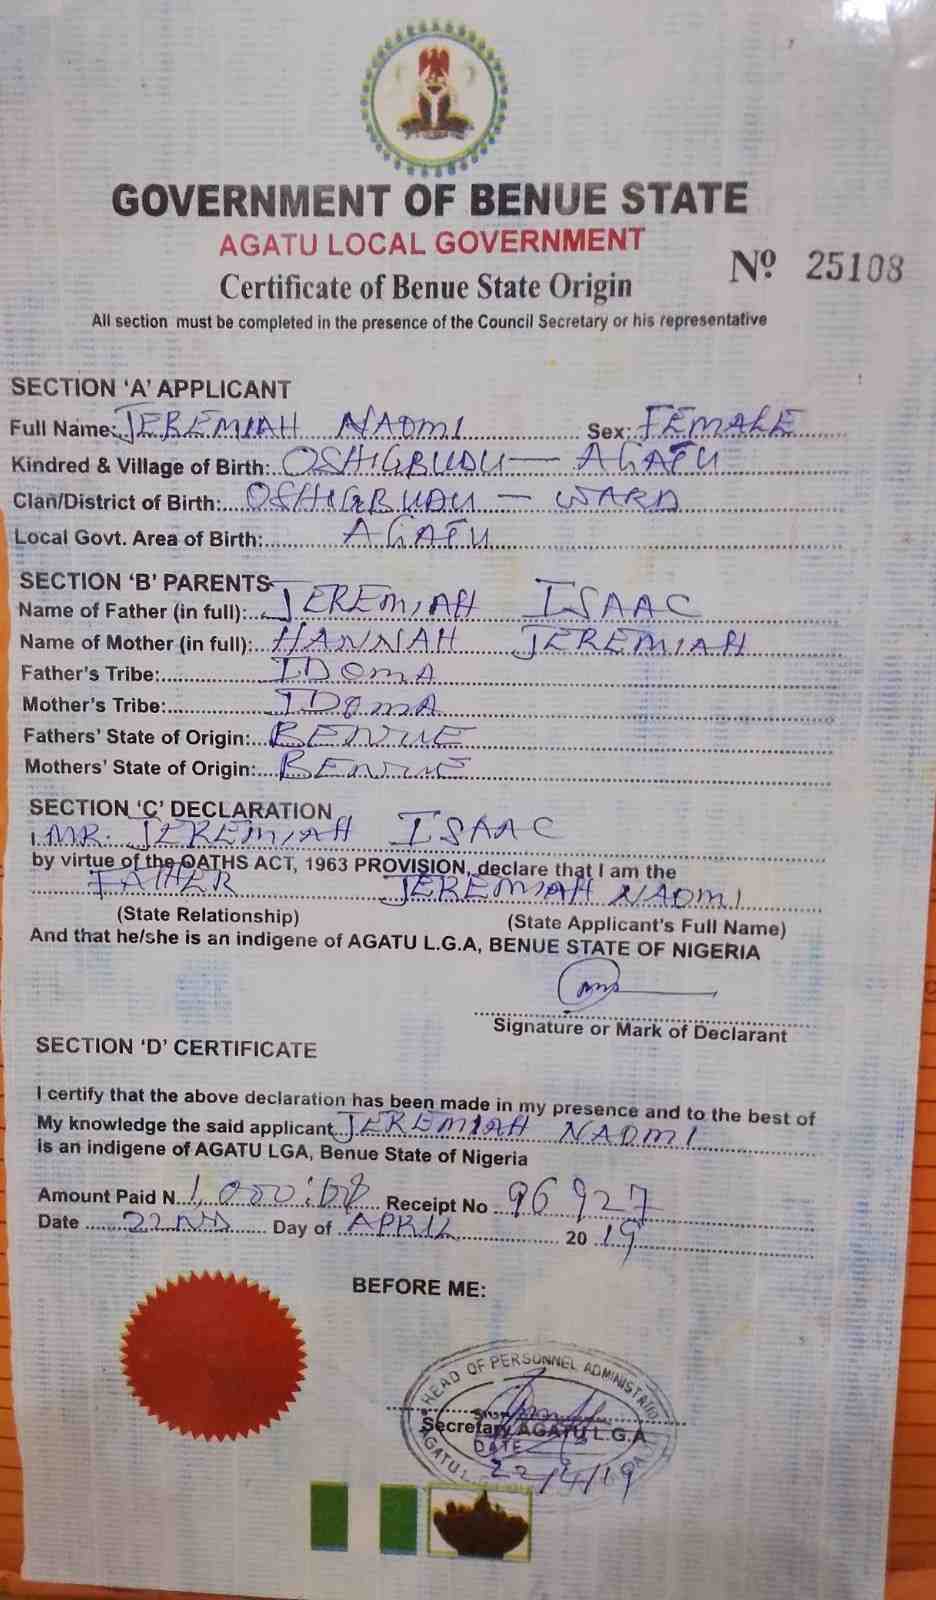 GOVERNMENT OF BENUE STATE
AGATU LOCAL GOVERNMENT
Nº 25108
Certificate of Benue State Origin
All section must be completed in the presence of the Council Secretary or his representative
SECTION ‘A’ APPLICANT
Full Name: JEREMIAH NAOMI Sex: FEMALE
Kindred & Village of Birth: OSHIGBUDU — AGATU
Clan/District of Birth: OSHIGBUDU — WARD
Local Govt. Area of Birth: AGATU
SECTION ‘B’ PARENTS
Name of Father (in full): JEREMIAH ISAAC
Name of Mother (in full): HANNAH JEREMIAH
Father's Tribe: IDOMA
Mother's Tribe: IDOMA
Fathers’ State of Origin: BENUE
Mothers’ State of Origin: BENUE
SECTION ‘C’ DECLARATION
I, MR. JEREMIAH ISAAC
by virtue of the OATHS ACT, 1963 PROVISION, declare that I am the
FATHER JEREMIAH NAOMI
(State Relationship) (State Applicant's Full Name)
And that he/she is an indigene of AGATU L.G.A, BENUE STATE OF NIGERIA
Signature or Mark of Declarant
SECTION ‘D’ CERTIFICATE
I certify that the above declaration has been made in my presence and to the best of
My knowledge the said applicant JEREMIAH NAOMI
is an indigene of AGATU LGA, Benue State of Nigeria
Amount Paid N 1,000:00 Receipt No 96927
Date 22ND Day of APRIL 2019
BEFORE ME:
HEAD OF PERSONNEL ADMINISTRATION
Secretary AGATU L.G.A
DATE
22/4/19
AGATU L.